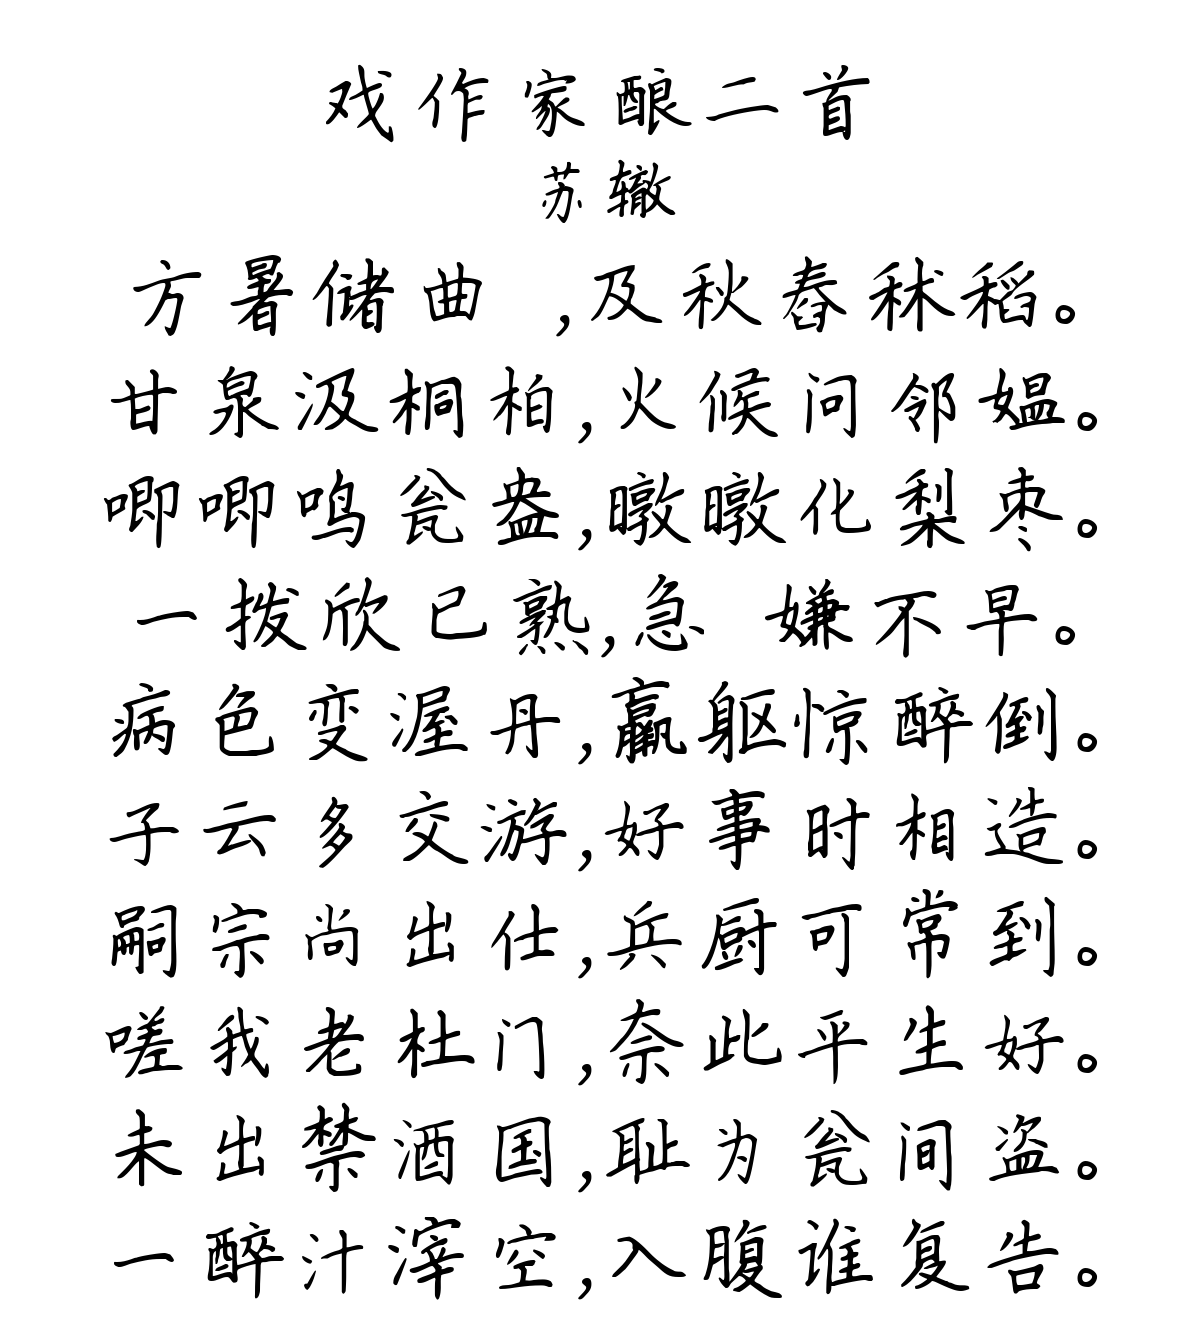 戏作家酿二首
苏辙
方暑储曲 ,及秋舂秫稻。
甘泉汲桐柏,火候问邻媪。
唧唧鸣瓮盎,暾暾化梨枣。
一拨欣已熟,急 嫌不早。
病色变渥丹,羸躯惊醉倒。
子云多交游,好事时相造。
嗣宗尚出仕,兵厨可常到。
嗟我老杜门,奈此平生好。
未出禁酒国,耻为瓮间盗。
一醉汁滓空,入腹谁复告。